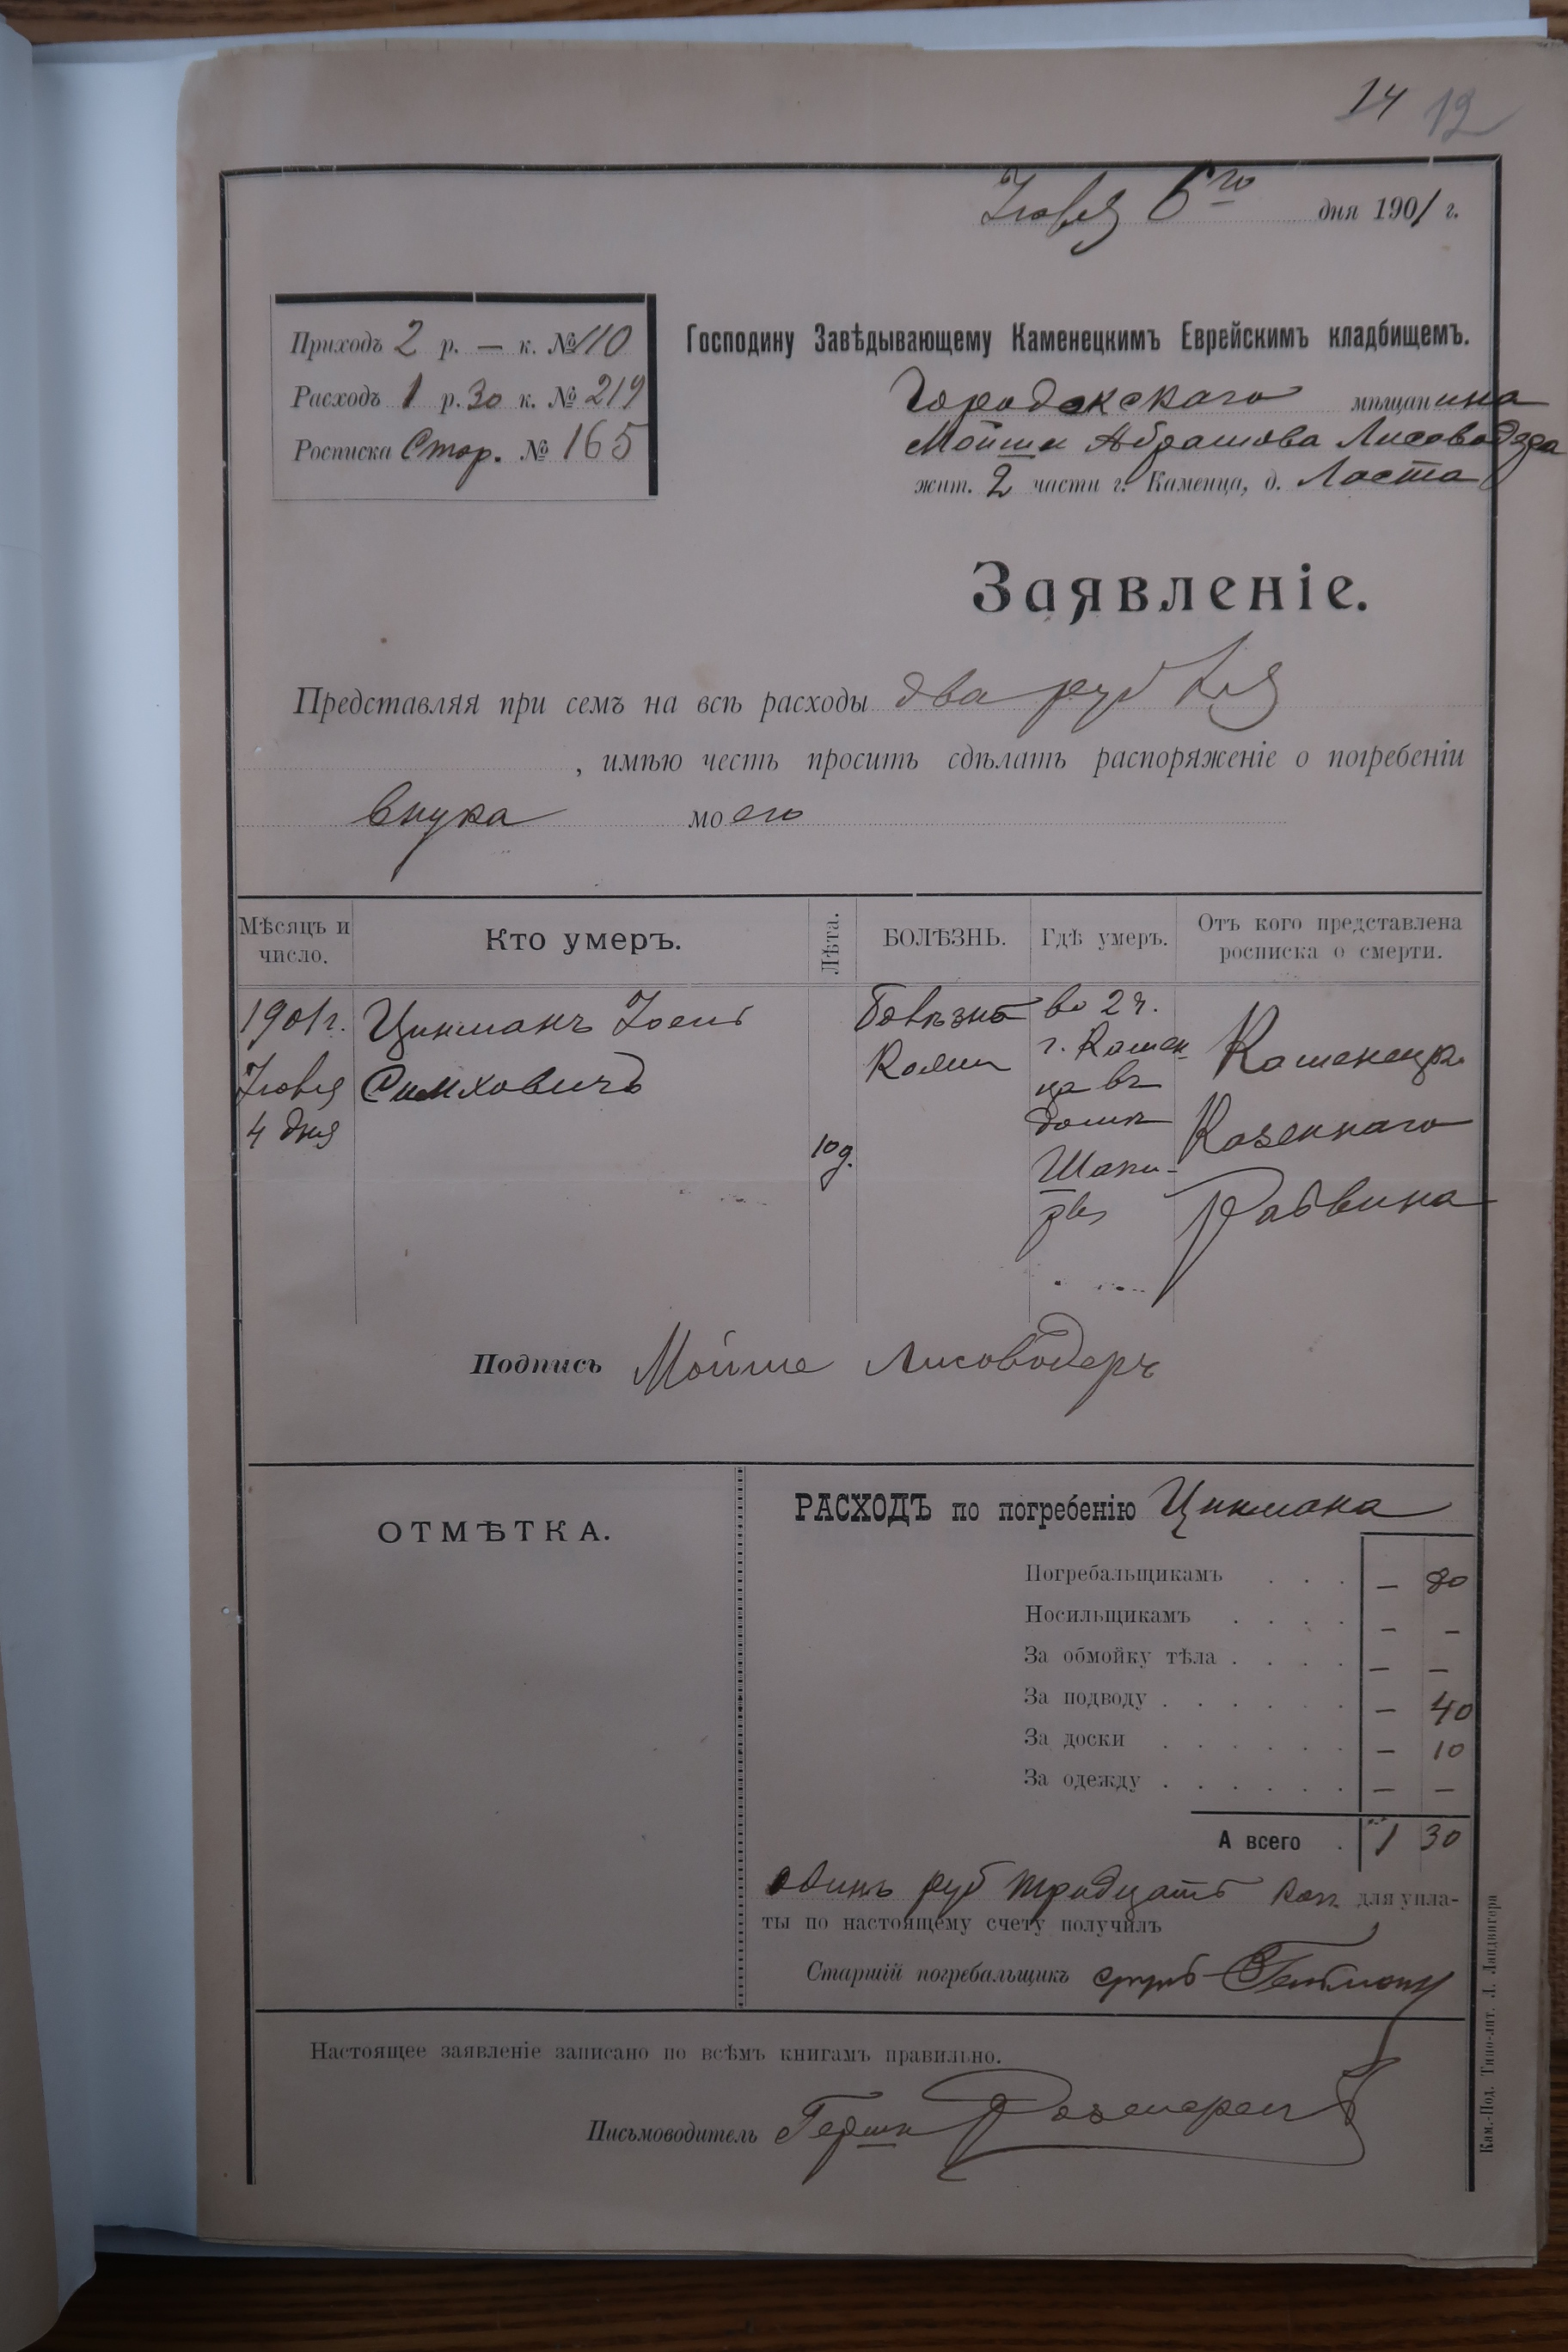 14 12
Іюля 6го дня 1901 г.
Приходъ 2 р. — к. № 110
Расходъ 1 р. 30 к. № 219
Росписка Стор. № 165
Господину Завѣдывающему Каменецкимъ Еврейскимъ кладбищемъ.
Городокскаго мѣщанина
Мойши Абрамова Лисоводера
жит. 2 части г. Каменца, д. Ласта
Заявленіе.
Представляя при семъ на всѣ расходы два рубля
, имѣю честь просить сдѣлать распоряженіе о погребеніи
внука моего
Мѣсяцъ и число.
Кто умеръ.
Лѣта.
БОЛѢЗНЬ.
Гдѣ умеръ.
Отъ кого представлена росписка о смерти.
1901 г.
Іюля
4 дня
Цикманъ Іоель
Симховичъ
10 д.
Болѣзнь
во 2 ч.
г. Камен-
ца въ
домѣ
Шапи-
Каменецк.
Казеннаго
Раввина
Подпись Мойше Лисоводеръ
ОТМѢТКА.
РАСХОДЪ по погребенію Цикмана
Погребальщикамъ . . . — 80
Носильщикамъ . . . . — —
За обмойку тѣла . . . . — —
За подводу . . . . . . — 40
За доски . . . . . . — 10
За одежду . . . . . . — —
А всего . 1 30
одинъ руб тридцать коп для упла-
ты по настоящему счету получилъ
Старшій погребальщикъ
Настоящее заявленіе записано по всѣмъ книгамъ правильно.
Письмоводитель Герш
Кам.-Под. Типо-лит. Л. Ландвигера